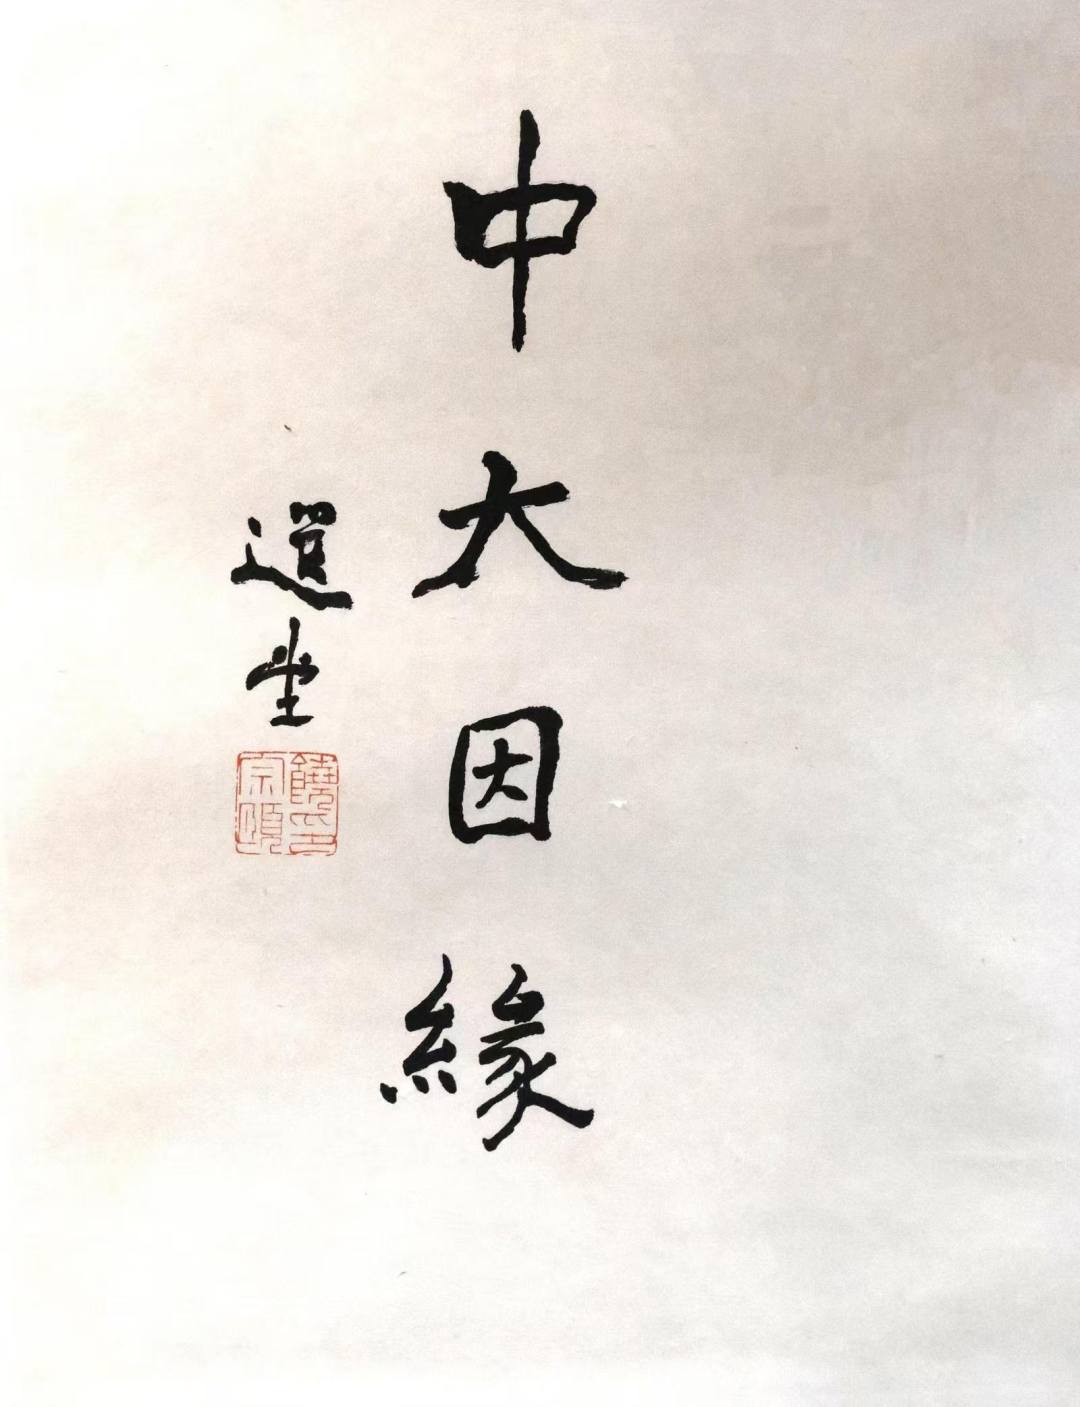 中大因緣
選堂
饒氏
宗頤